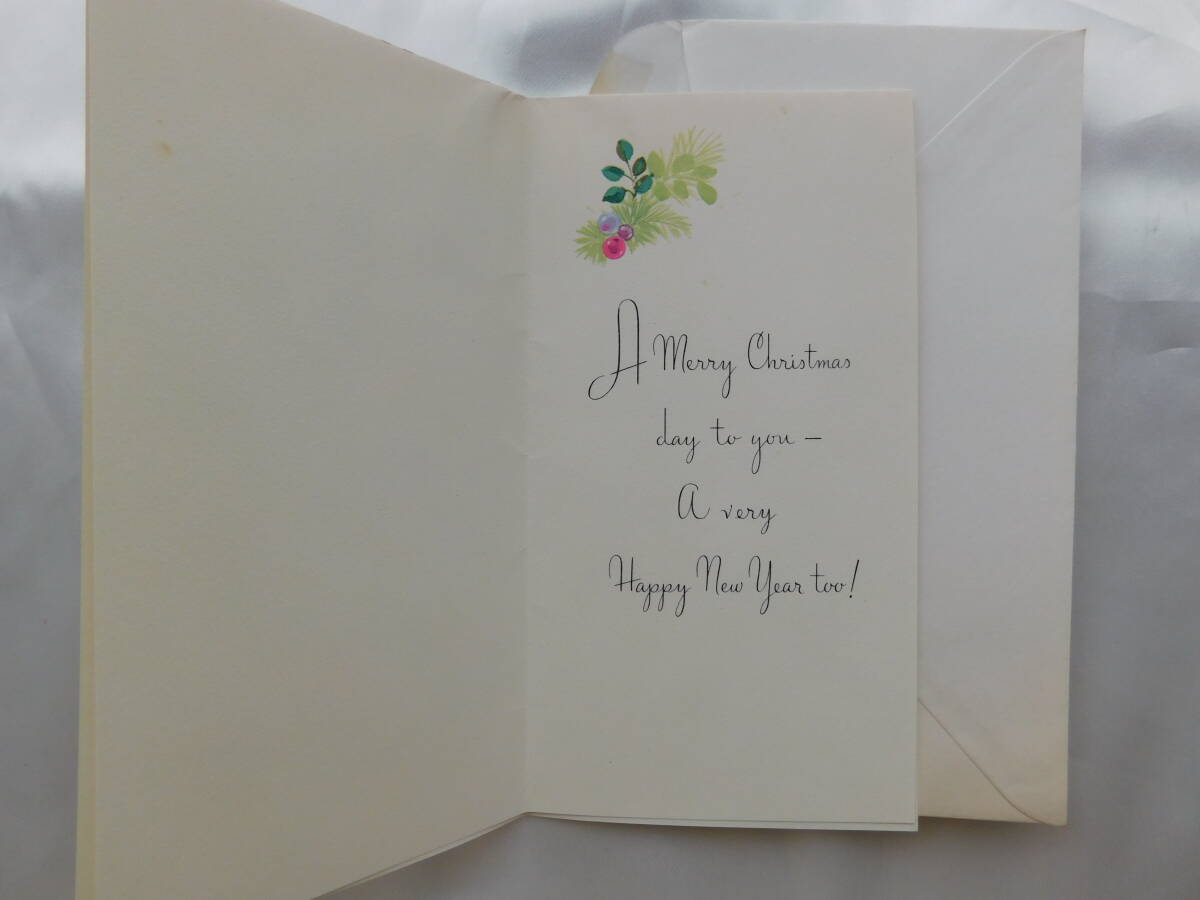 A Merry Christmas
day to you —
A very
Happy New Year too!